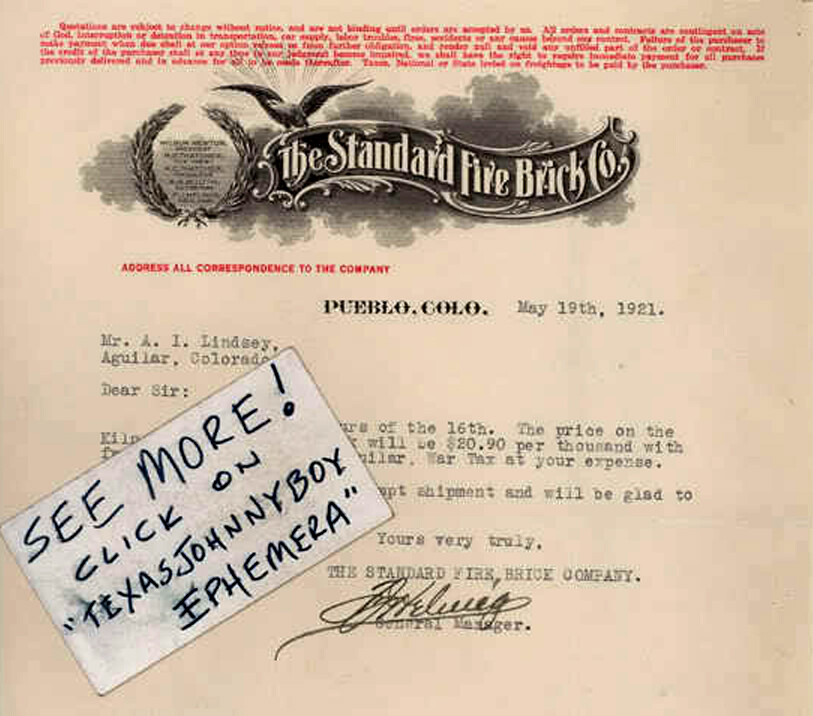 Quotations are subject to change without notice, and are not binding until orders are accepted by us. All orders and contracts are contingent on acts
of God, interruption or detention in transportation, car supply, labor troubles, fires, accidents or any causes beyond our control. Failure of the purchaser to
make payment when due shall at our option release us from further obligation, and render null and void any unfilled part of the order or contract. If
the credit of the purchaser shall at any time in our judgment become impaired, we shall have the right to require immediate payment for all purchases
previously delivered and in advance for all to be made thereafter. Taxes, National or State levied on freightage to be paid by the purchaser.
The Standard Fire Brick Co.
PRESIDENT
ADDRESS ALL CORRESPONDENCE TO THE COMPANY
PUEBLO, COLO. May 19th, 1921.
Mr. A. I. Lindsey,
Aguilar, Colorado
Dear Sir:
urs of the 16th. The price on the
Kiln
k will be $20.90 per thousand with
uilar, War Tax at your expense.
mpt shipment and will be glad to
Yours very truly,
THE STANDARD FIRE BRICK COMPANY.
General Manager.
SEE MORE!
CLICK ON
"TEXASJOHNNYBOY
EPHEMERA"